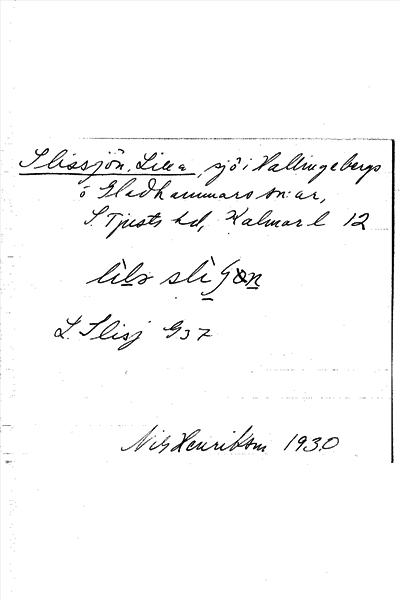 Slissjön, Lilla, sjö i Hallingebergs
o Gladhammars sn:ar,
S. Tjusts hd, Kalmar l 12
L. Slisj G 37
Nils Henrikson 1930